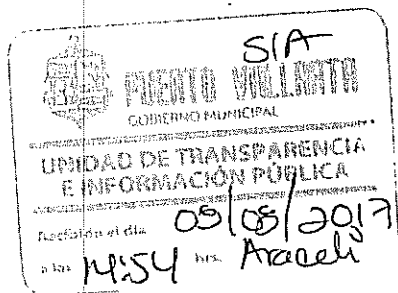 S/A
PUERTO VALLARTA
GOBIERNO MUNICIPAL
UNIDAD DE TRANSPARENCIA
E INFORMACIÓN PÚBLICA
el día 09/08/2017
a las 14:54 hrs. Araceli